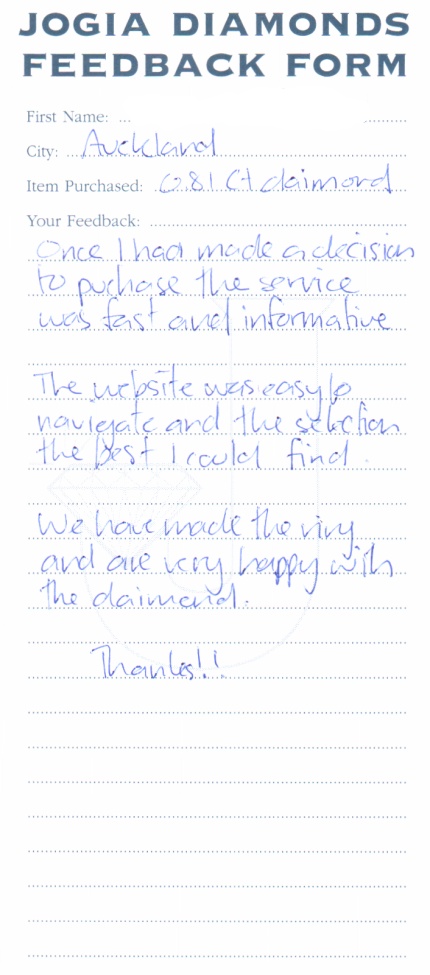 JOGIA DIAMONDS
FEEDBACK FORM
First Name:
City: Auckland
Item Purchased: 0.81 Ct daimond
Your Feedback:
Once I had made a decision
to puchase the service
was fast and informative
The website was easy to
navigate and the selection
the best I could find.
We have made the ring
and are very happy with
the daimond.
Thanks!!